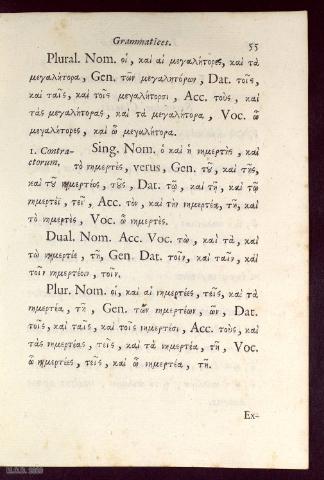 Grammatices. 55
Plural. Nom. οἱ, καὶ αἱ μεγαλήτορες, καὶ τὰ
μεγαλήτορα, Gen. τῶν μεγαλητόρων, Dat. τοῖς,
καὶ ταῖς, καὶ τοῖς μεγαλήτορσι, Acc. τοὺς, καὶ
τὰς μεγαλήτορας, καὶ τὰ μεγαλήτορα, Voc. ὦ
μεγαλήτορες, καὶ ὦ μεγαλήτορα.
1. Contra- Sing. Nom. ὁ καὶ ἡ νημερτὴς, καὶ
ctorum. τὸ νημερτὲς, verus, Gen. τοῦ, καὶ τῆς,
καὶ τοῦ νημερτέος, τοῦς, Dat. τῷ, καὶ τῇ, καὶ τῷ
νημερτέϊ, τεῖ, Acc. τὸν, καὶ τὴν νημερτέα, τῆ, καὶ
τὸ νημερτὲς, Voc. ὦ νημερτές.
Dual. Nom. Acc. Voc. τὼ, καὶ τὰ, καὶ
τὼ νημερτέε, τῆ, Gen. Dat. τοῖν, καὶ ταῖν, καὶ
τοῖν νημερτέοιν, τοῖν.
Plur. Nom. οἱ, καὶ αἱ νημερτέες, τεῖς, καὶ τὰ
νημερτέα, τῆ, Gen. τῶν νημερτέων, ῶν, Dat.
τοῖς, καὶ ταῖς, καὶ τοῖς νημερτέσι, Acc. τοὺς, καὶ
τὰς νημερτέας, τεῖς, καὶ τὰ νημερτέα, τῆ, Voc.
ὦ νημερτέες, τεῖς, καὶ ὦ νημερτέα, τῆ.
Ex-